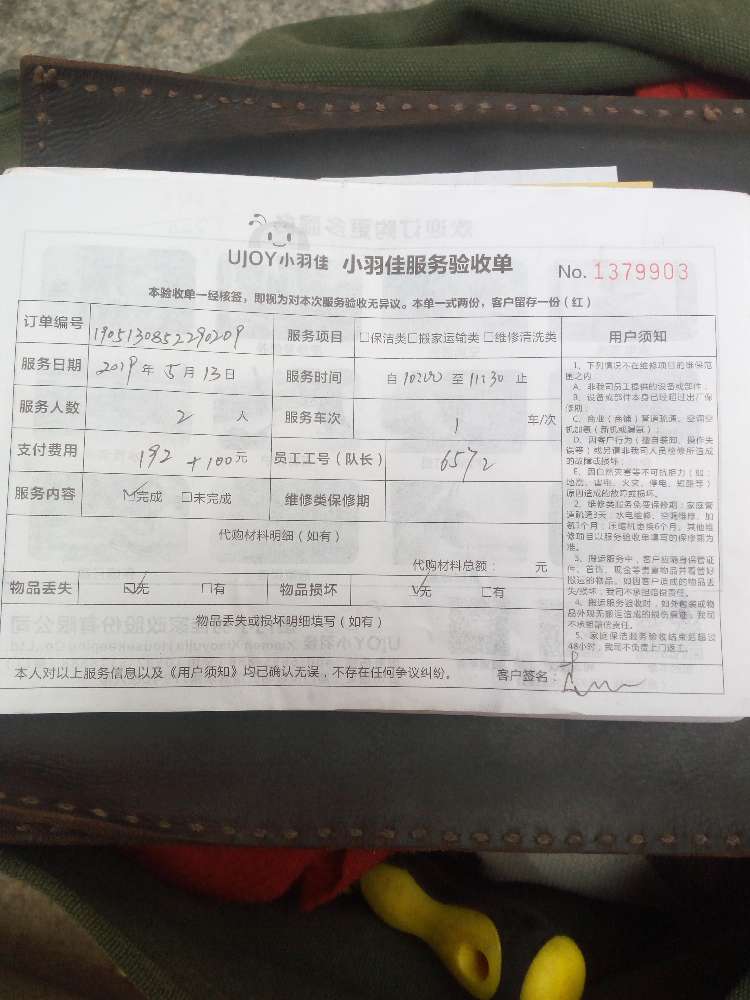 UJOY小羽佳 小羽佳服务验收单 No. 1379903
本验收单一经核签，即视为对本次服务验收无异议。本单一式两份，客户留存一份（红）
订单编号 1905130852290209 服务项目 □保洁类□搬家运输类□维修清洗类
服务日期 2019年5月13日 服务时间 自10:00至11:30止
服务人数 2人 服务车次 1车/次
支付费用 192+100元 员工工号（队长） 6572
服务内容 ☑完成 □未完成 维修类保修期
代购材料明细（如有）
代购材料总额： 元
物品丢失 ☑无 □有 物品损坏 ☑无 □有
物品丢失或损坏明细填写（如有）
本人对以上服务信息以及《用户须知》均已确认无误，不存在任何争议纠纷。 客户签名：
用户须知
1、下列情况不在维修项目的维保范
围之内
A、非我司员工提供的设备或部件；
B、设备或部件本身已经超过出厂保
修期；
C、商业（商铺）管道疏通、空调空
机加氟（新机或漏氟）；
D、因客户行为（擅自装卸、操作失
误等）或另请非我司人员检修所造成
的故障或损坏；
E、因自然灾害等不可抗拒力（如：
地震、雷电、火灾、停电、短路等）
原因造成的故障或损坏。
2、维修类服务免费保修期：家庭管
道疏通3天，水电维修、空调维修、加
氟1个月；压缩机更换6个月。其他维
修项目以服务验收单填写的保修期为
准。
3、搬运服务中，客户应随身保管证
件、首饰、现金等贵重物品并看管好
搬运的物品。如因客户造成的物品丢
失/损坏，我司不承担赔偿责任。
4、搬运服务验收时，如外包装或物
品外观无搬运造成的损伤痕迹，我司
不承担赔偿责任。
5、家庭保洁服务验收结束若超过
48小时，我司不负责上门返工。